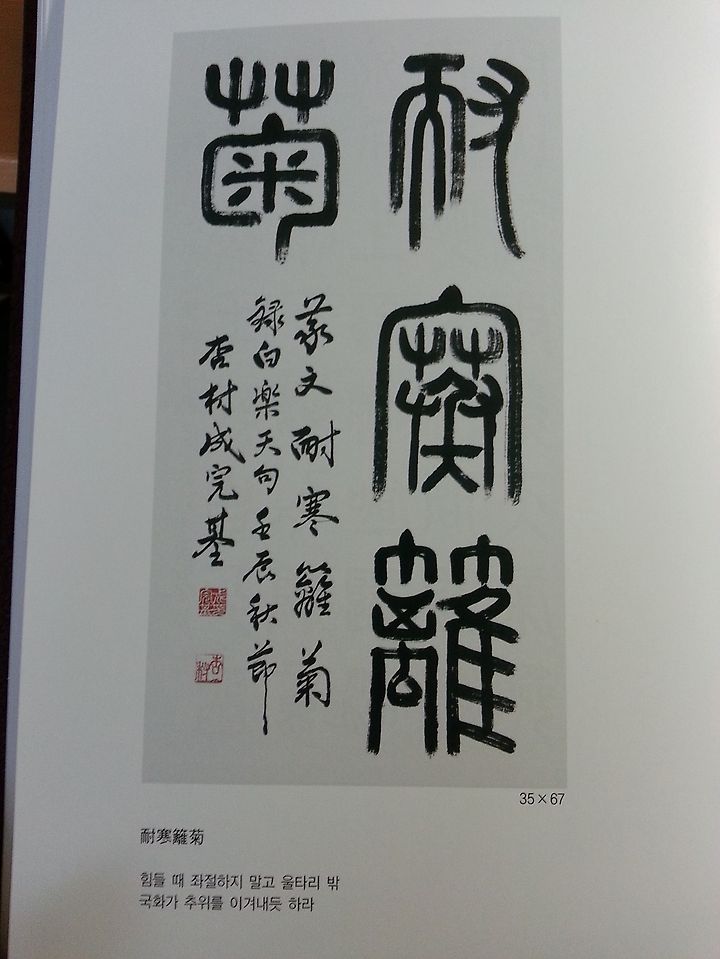 耐寒籬
菊
篆文耐寒籬菊
録白楽天句壬辰秋節
杏村成完基
杏村
35×67
耐寒籬菊
힘들 때 좌절하지 말고 울타리 밖
국화가 추위를 이겨내듯 하라